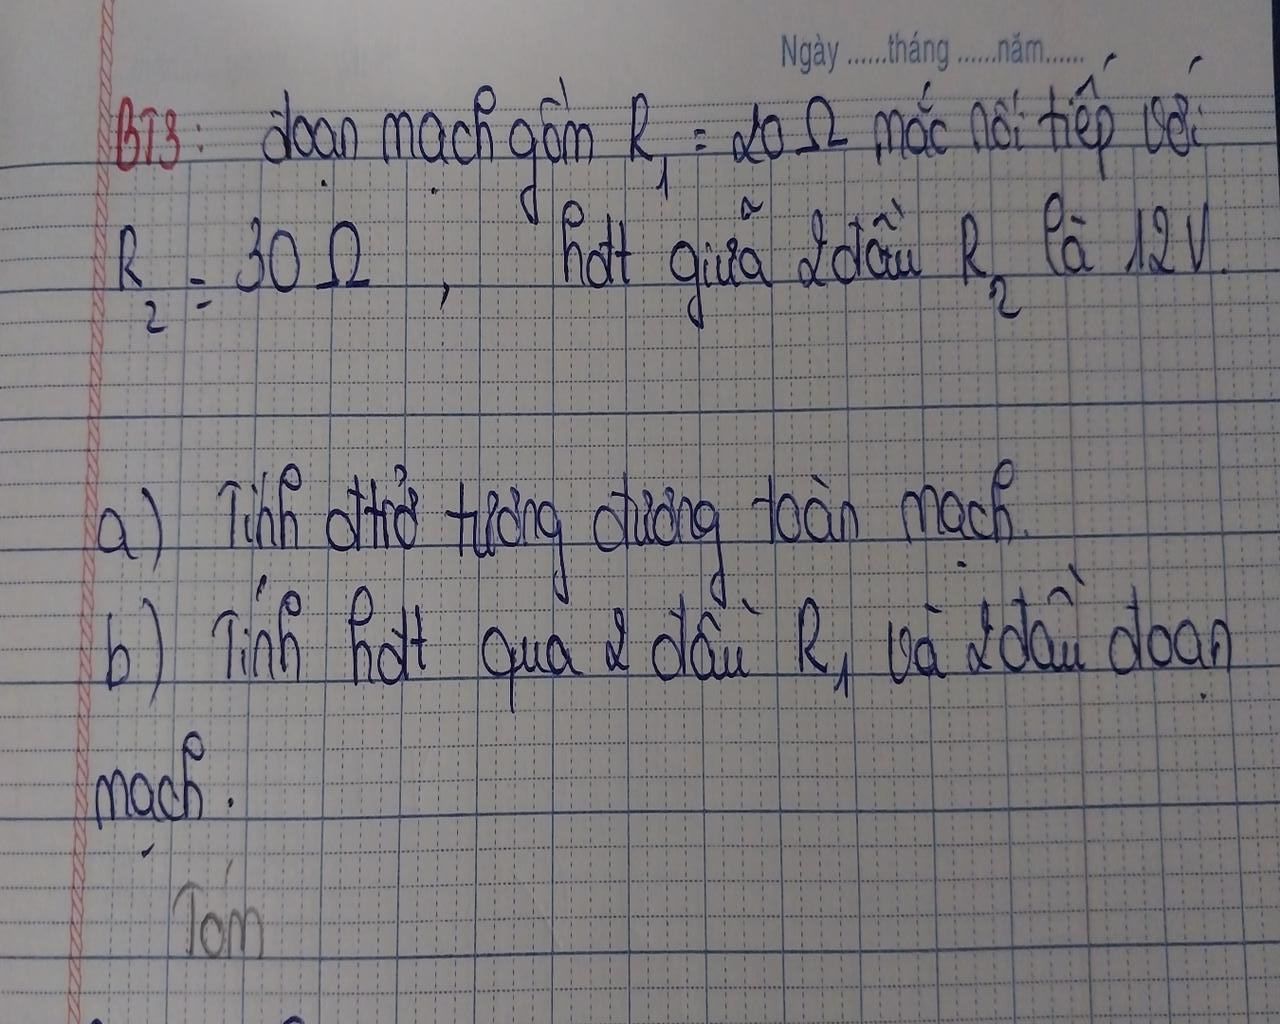 Ngày ......tháng ......năm......
BT3: đoạn mạch gồm R₁ = 20 Ω mắc nối tiếp với
R₂ = 30 Ω , hđt giữa 2 đầu R₂ là 12V.
a) Tính đtrở tương đương toàn mạch.
b) Tính hđt qua 2 đầu R₁ và 2 đầu đoạn
mạch.
Tóm